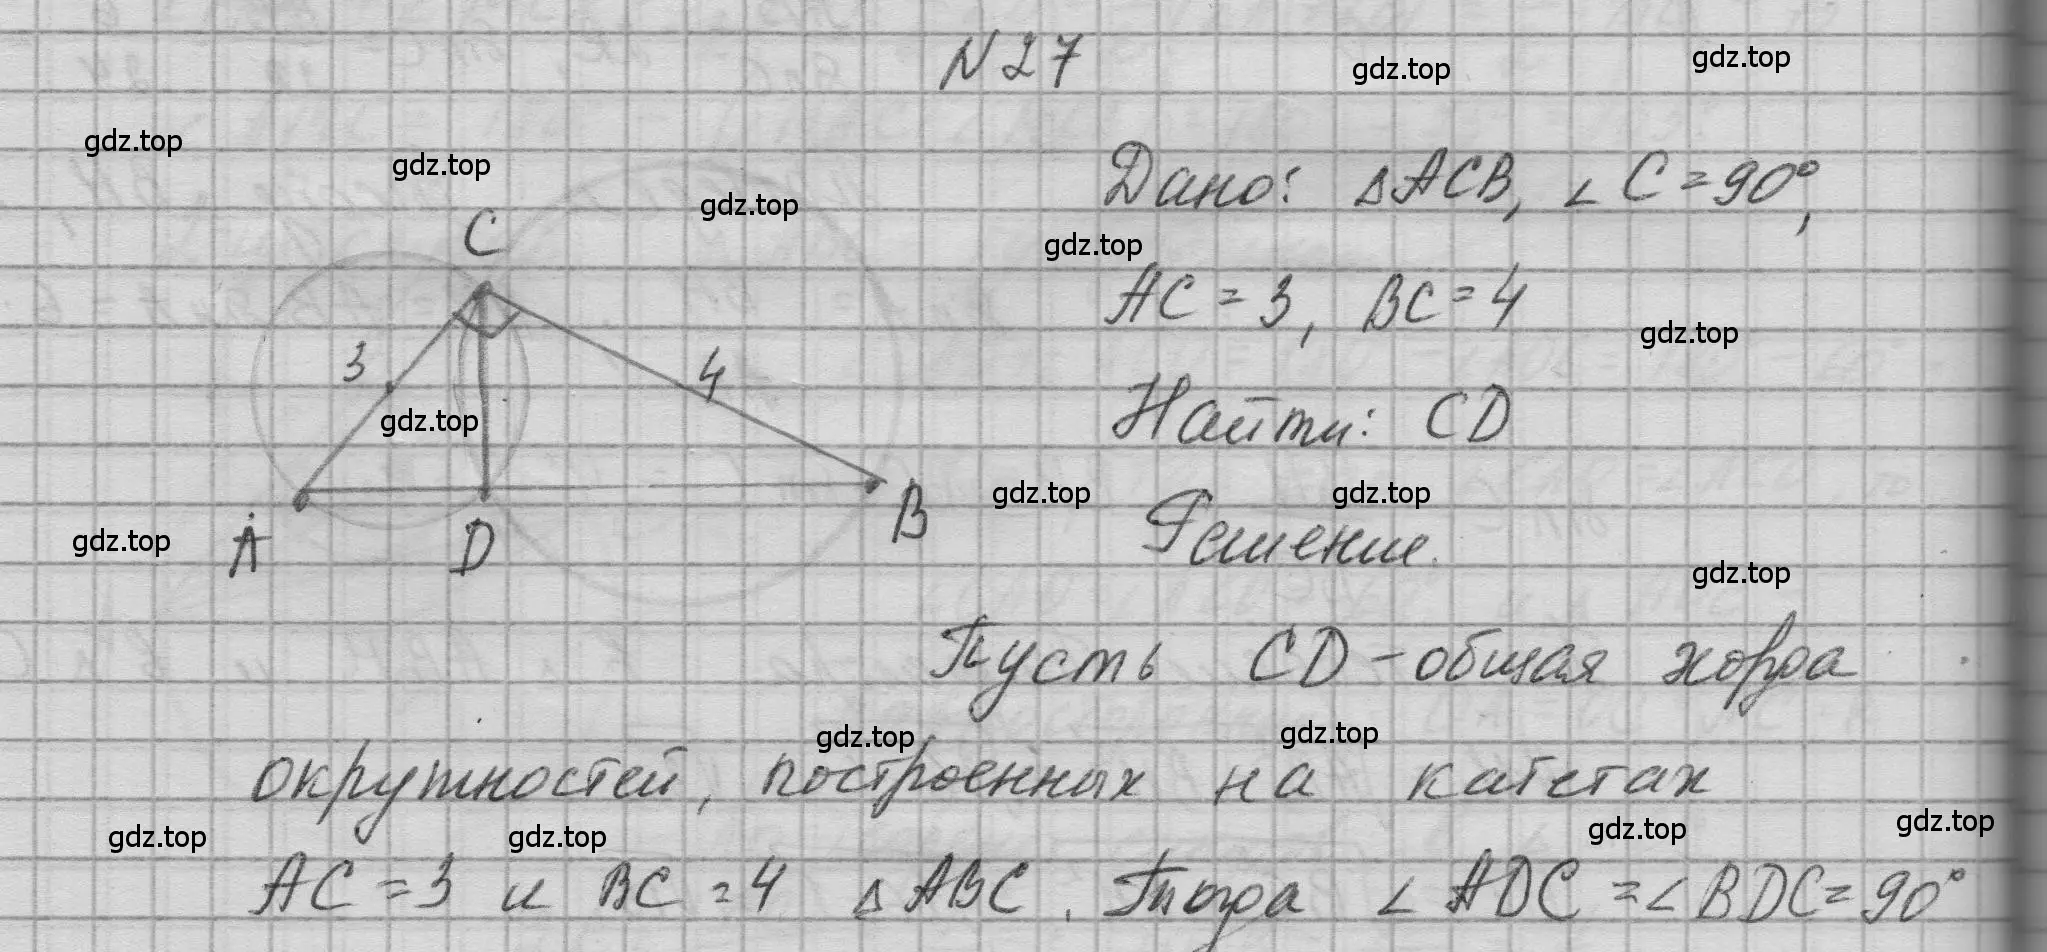 N 27
gdz.top
gdz.top
gdz.top
gdz.top
gdz.top
Дано: △ACB, ∠C=90°,
gdz.top
C
AC=3, BC=4
gdz.top
3
4
gdz.top
Найти: CD
gdz.top
gdz.top
A
D
B
gdz.top
Решение.
gdz.top
Пусть CD-общая хорда
gdz.top
gdz.top
окружностей, построенных на катетах
gdz.top
gdz.top
gdz.top
gdz.top
AC=3 и BC=4 △ABC. Тогда ∠ADC=∠BDC=90°